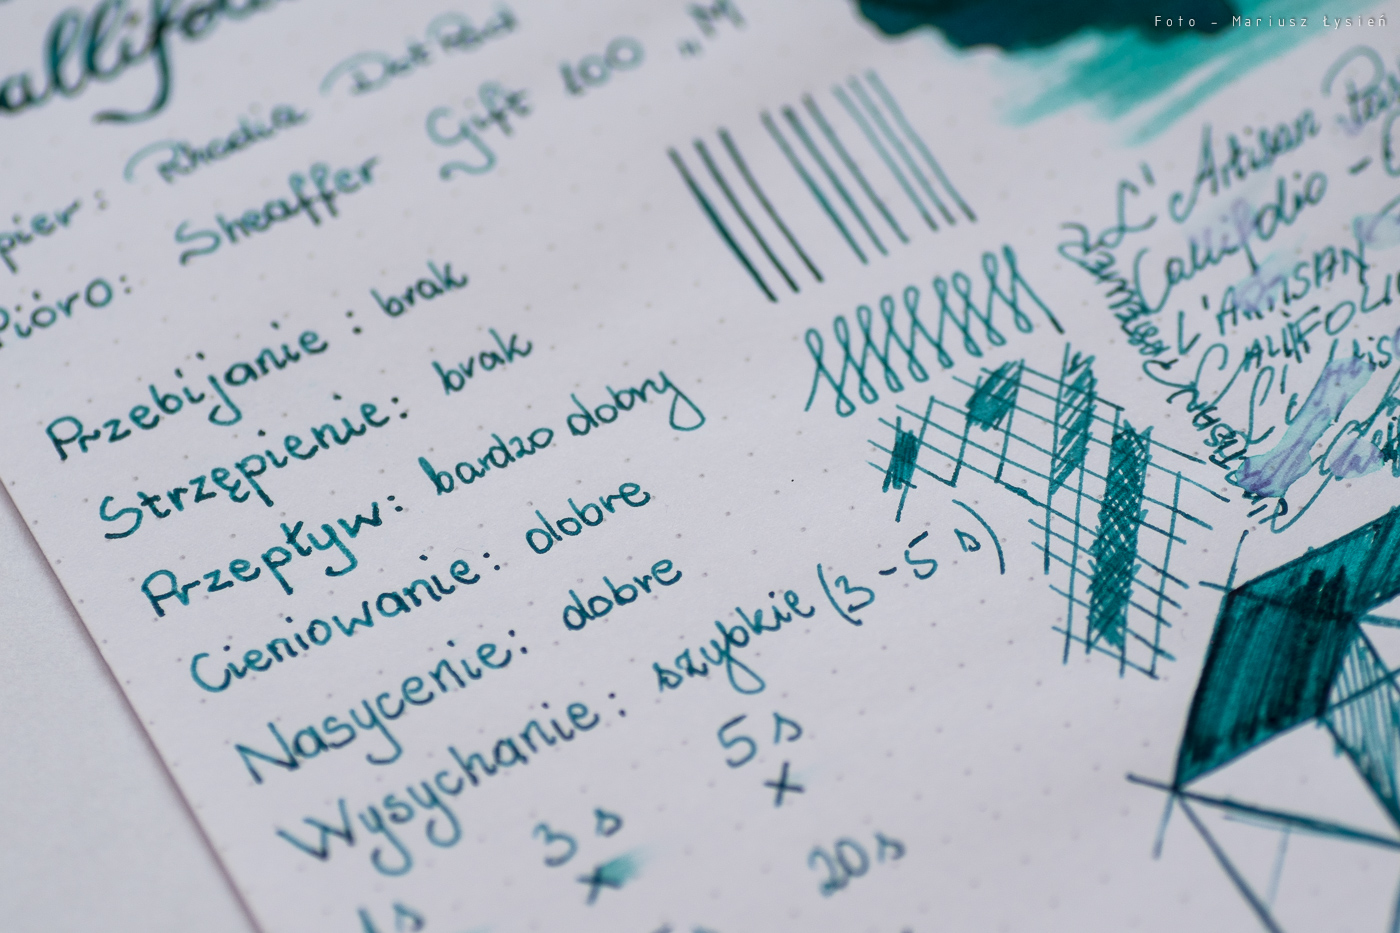 Foto - Mariusz Łysień
Rhodia Dot Pad
Pióro: Sheaffer Gift 100 „M
Przebijanie : brak
Strzępienie: brak
Przepływ: bardzo dobry
Cieniowanie: dobre
Nasycenie: dobre
Wysychanie: szybkie (3-5 s)
1s
3 s
5 s
x
x
20 s
L'Artisan
Callifolio -
L'ARTISAN
CALLIFOLIO
L'Artis